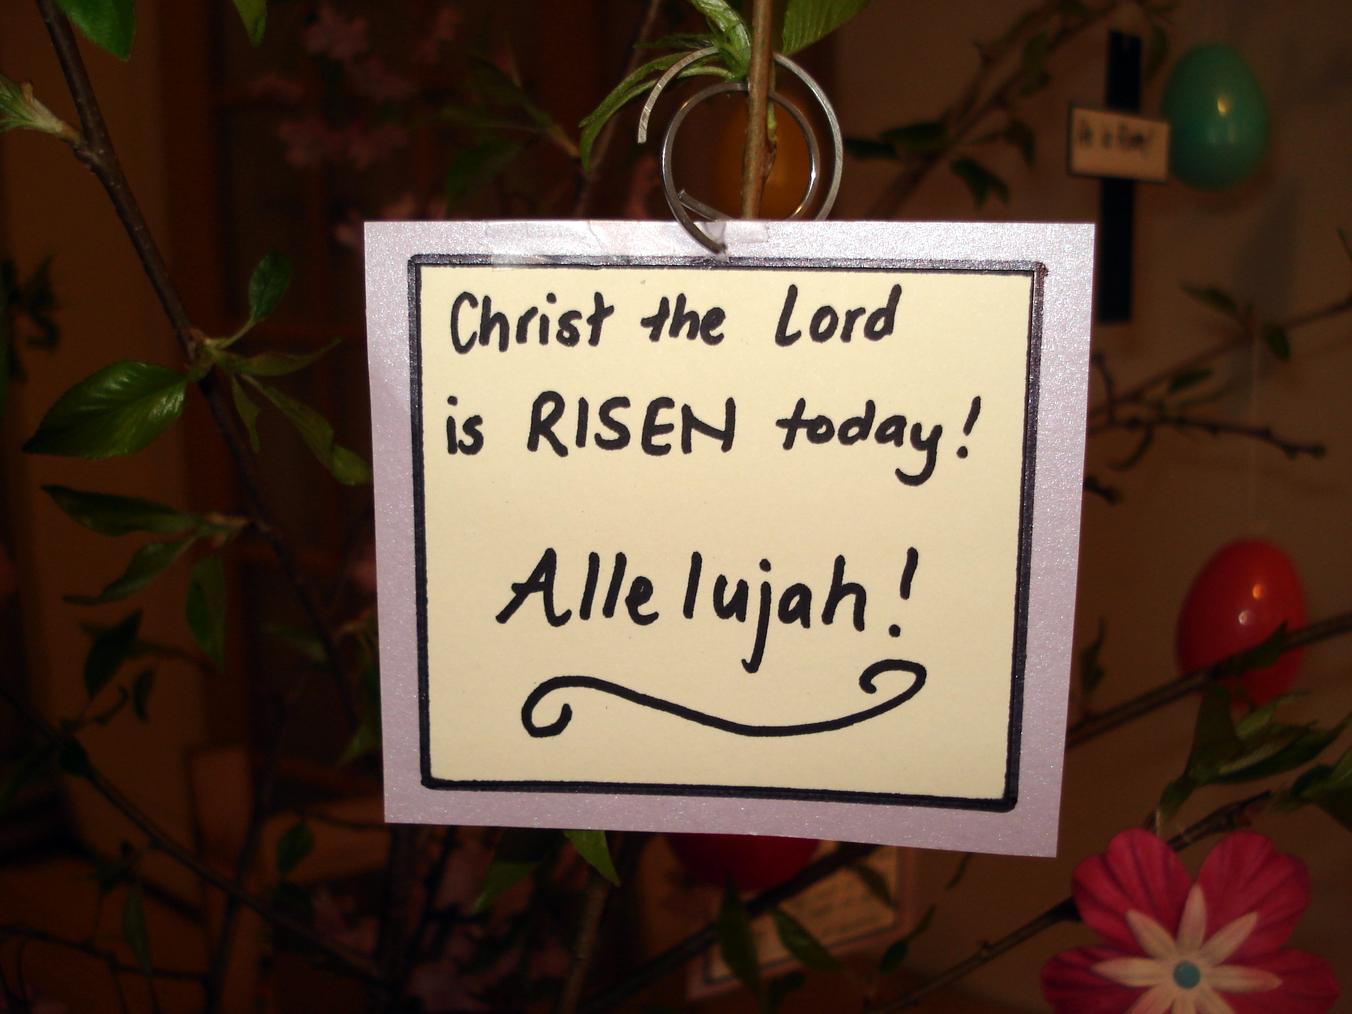 Christ the Lord
is RISEN today!
Allelujah!